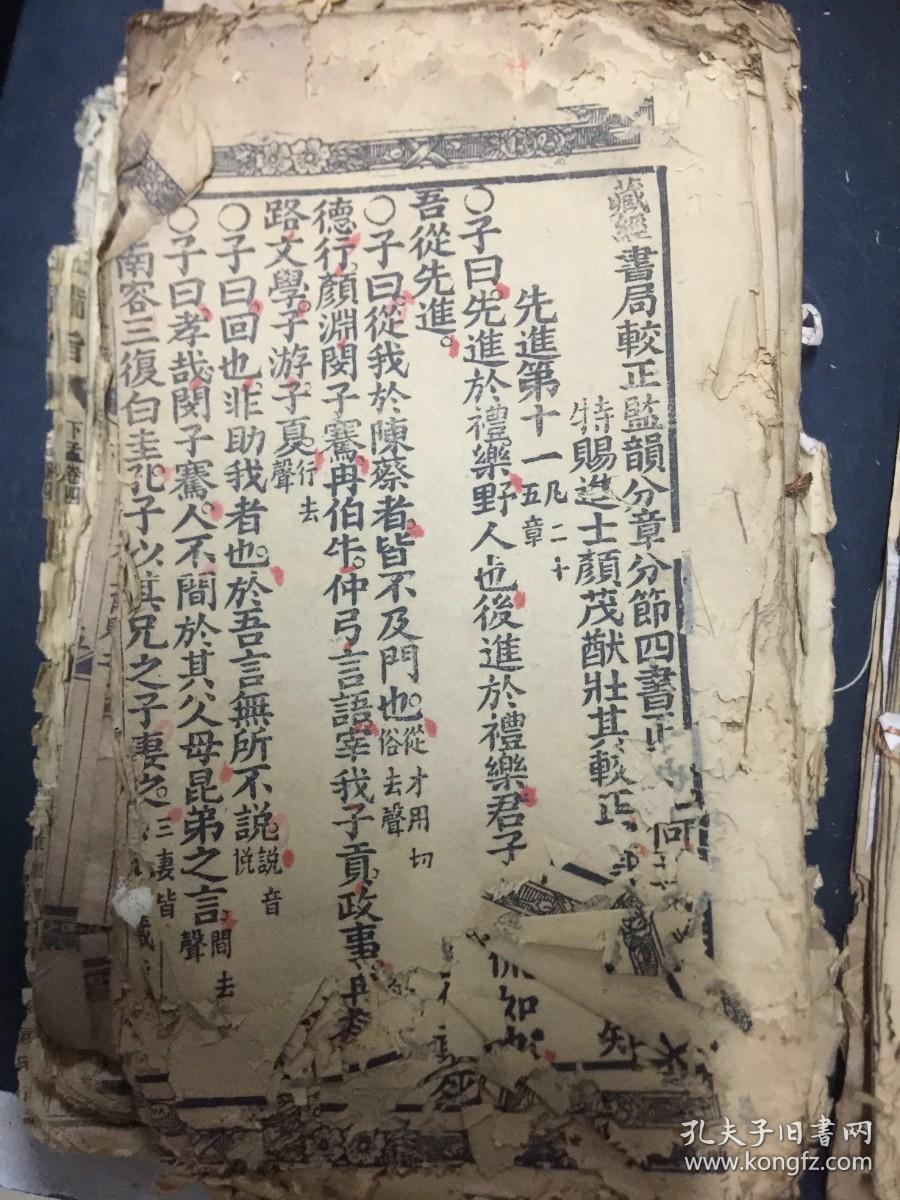 藏經書局較正監韻分章分節四書正
特賜進士顏茂猷壯其較正
先進第十一 凡二十五章
○子曰。先進於禮樂野人也後進於禮樂君子
吾從先進。
○子曰。從我於陳蔡者。皆不及門也。從才用切俗去聲
德行。顏淵閔子騫冉伯牛。仲弓言語宰我子貢。政事冉
路文學。子游。子夏。行去聲
○子曰。回也。非助我者也。於吾言無所不說。說音悅
○子曰。孝哉閔子騫。人不間於其父母昆弟之言。間去聲
南容三復白圭。孔子以其兄之子妻之。三妻皆
下孟卷四
何
知
孔夫子旧书网
www.kongfz.com